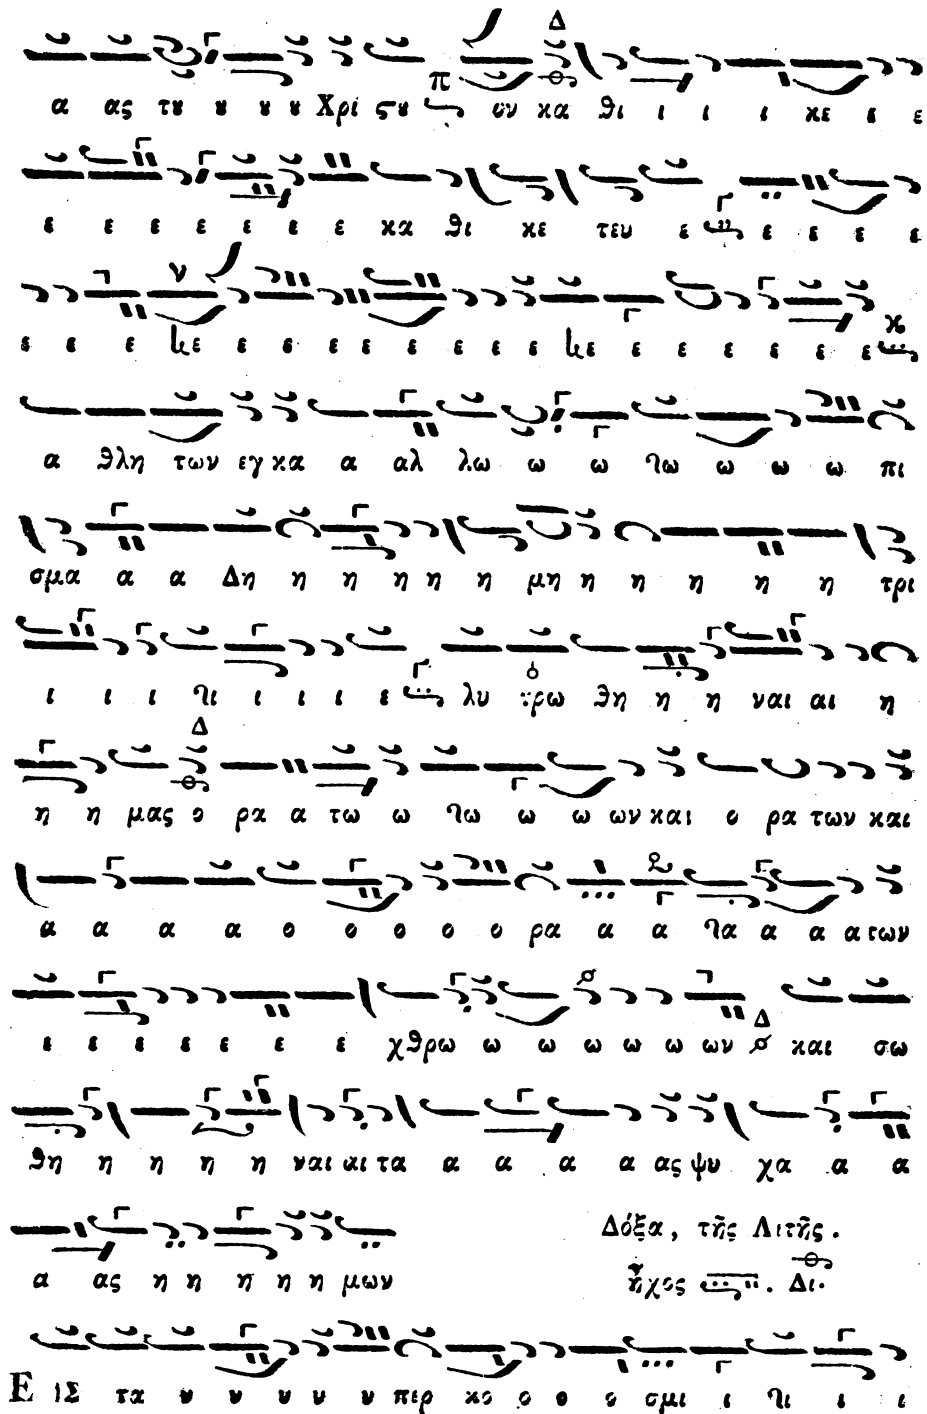 α ας τȣ ȣ ȣ ȣ Χρι ϛȣ ȣν κα θι ι ι ι κε ε ε
ε ε ε ε ε ε ε κα θι κε τευ ε ε ε ε ε
ε ε ε κε ε ε ε ε ε ε ε ε κε ε ε ε ε ε ε
α θλη των εγ κα α αλ λω ω ω τω ω ω ω πι
σμα α α Δη η η η η η μη η η η η η τρι
ι ι ι τι ι ι ι ε λυ τρω θη η η ναι αι η
η η μας ο ρα α τω ω τω ω ω ων και ο ρα των και
α α α α ο ο ο ο ο ρα α α τα α α α των
ε ε ε ε ε ε ε χθρω ω ω ω ω ω ων και σω
θη η η η η ναι αι τα α α α α ας ψυ χα α α
α ας η η η η η μων Δόξα, τῆς Λιτῆς.
ἦχος Δι.
Ε ΙΣ τα υ υ υ υ υ περ κο ο ο ο σμι ι τι ι ι